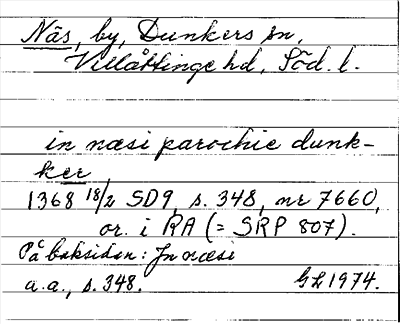 Näs, by, Dunkers sn,
Villåttinge hd, Söd. l.
in næsi parochie dunk-
ker
1368 18/2 SD9, s. 348, nr 7660,
or. i RA (= SRP 807).
På baksidan: Jn næsi
a.a., s. 348. GL 1974.